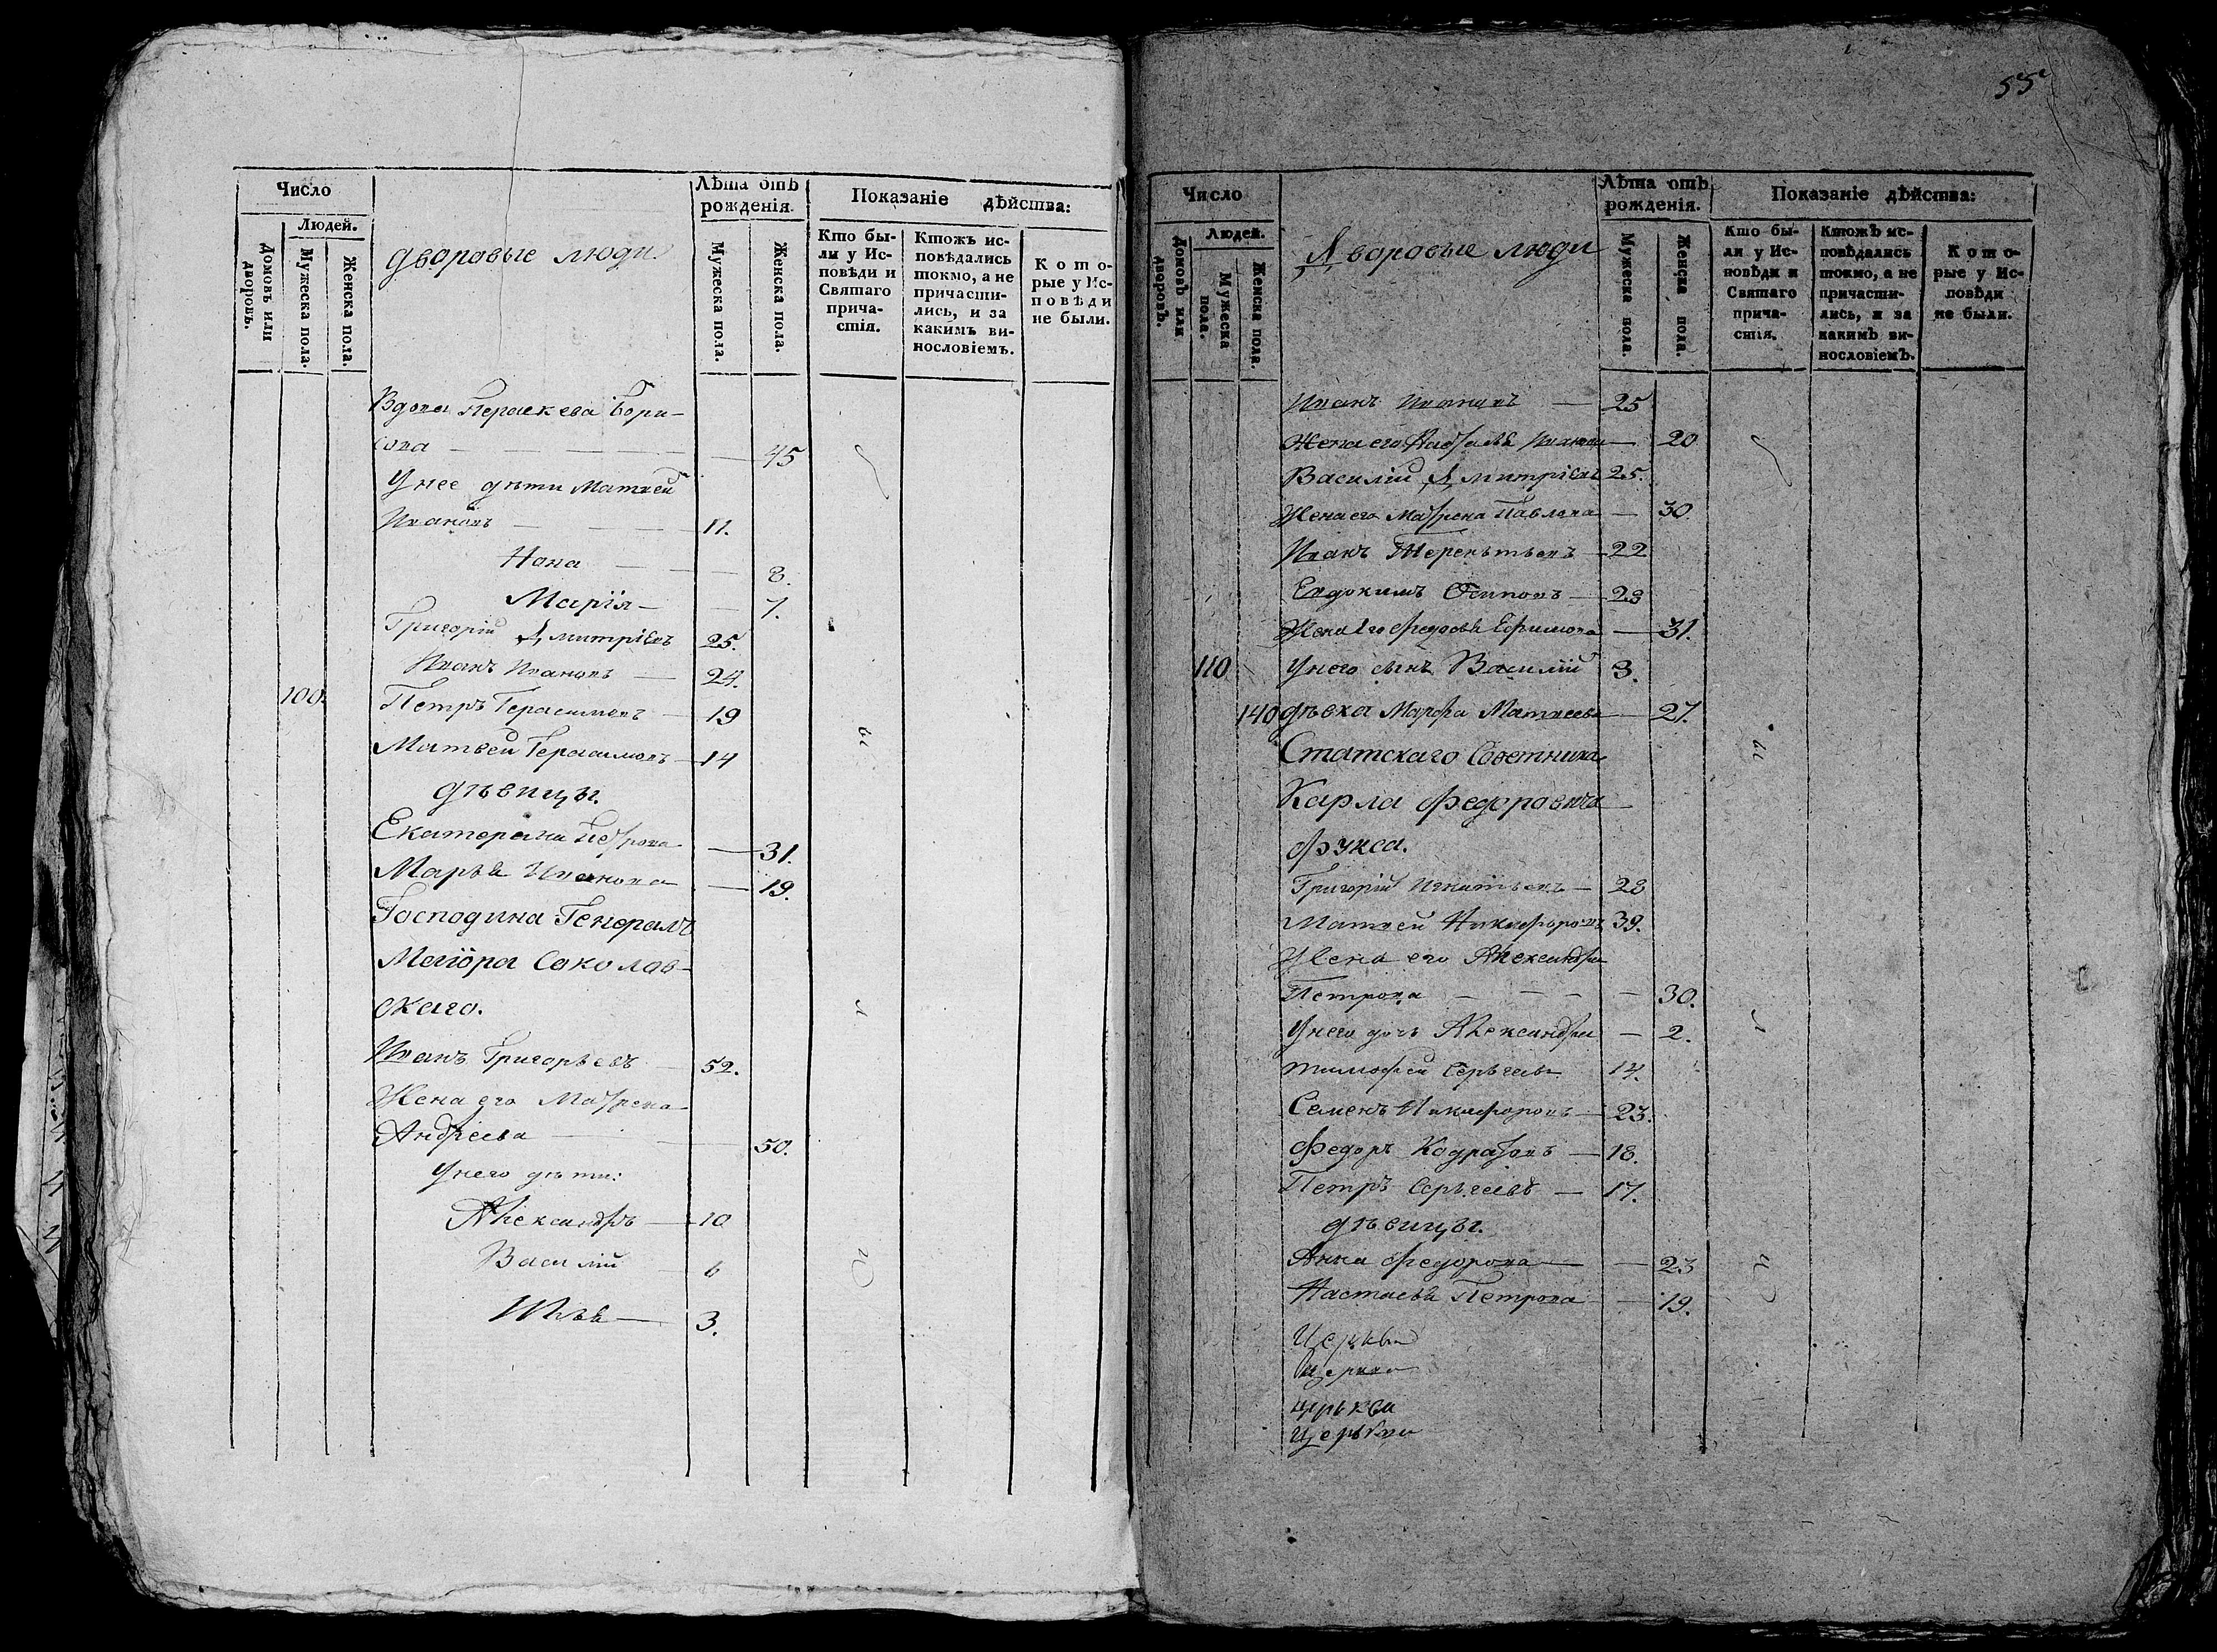 Число
Людей.
Домовъ или дворовъ.
Мужеска пола.
Женска пола.
дворовые люди
Лѣта отъ рожденія.
Мужеска пола.
Женска пола.
Показаніе дѣйства:
Кто бы-
ли у Ис-
повѣди и
Святаго
прича-
стія.
Ктожъ ис-
повѣдались
токмо, а не
причасти-
лись, и за
какимъ ви-
нословіемъ.
К о т о-
рые у Ис-
п о в ѣ д и
не были.
Вдова Пераскева Бори-
сова — 45
У нее дѣти Матвей
Ивановъ — 11.
Нона — 8.
Марія — 7.
Григорій Дмитріевъ 25.
Иванъ Ивановъ — 24.
100. Петръ Герасимовъ — 19
Матвей Герасимовъ — 14
дѣвицы.
Екатерина Петрова — 31.
Марья Иванова — 19.
Господина Генералъ
Маіора Соколов-
скаго.
Иванъ Григорьевъ — 52.
Жена его Матрена
Андреева — 50.
У него дѣти:
Александръ — 10
Василій — 6
Илья — 3.
55
Число
Людей.
Домовъ или дворовъ.
Мужеска пола.
Женска пола.
Дворовые люди
Лѣта отъ рожденія.
Мужеска пола.
Женска пола.
Показаніе дѣйства:
Кто бы-
ли у Ис-
повѣди и
Святаго
прича-
стія.
Ктожъ ис-
повѣдались
токмо, а не
причасти-
лись, и за
какимъ ви-
нословіемъ.
К о т о-
рые у Ис-
повѣди
не были.
Иванъ Ивановъ — 25
Жена его Наталья — 20
Василій Дмитріевъ 25.
Жена его Матрена Павлова — 30.
Иванъ Терентьевъ — 22
Евдокимъ Осиповъ — 28
Жена Его Федосья Ефимова — 31.
110 У него сынъ Василій 3.
140 дѣвка Марфа Матвеева — 27.
Статскаго Советника
Карла Федоровича
Фукса.
Григорій Игнатьевъ — 28
Матвей Никифоровъ 39.
Жена его Александра
Петрова — 30.
У него дочь Александра — 2.
Тимофей Сергеевъ 14.
Семенъ Никифоровъ — 23.
Федоръ Кодратовъ — 18.
Петръ Сергеевъ — 17.
дѣвицы.
Анна Федорова — 23
Настасья Петрова — 19.
Церькви
црькви
Церькви